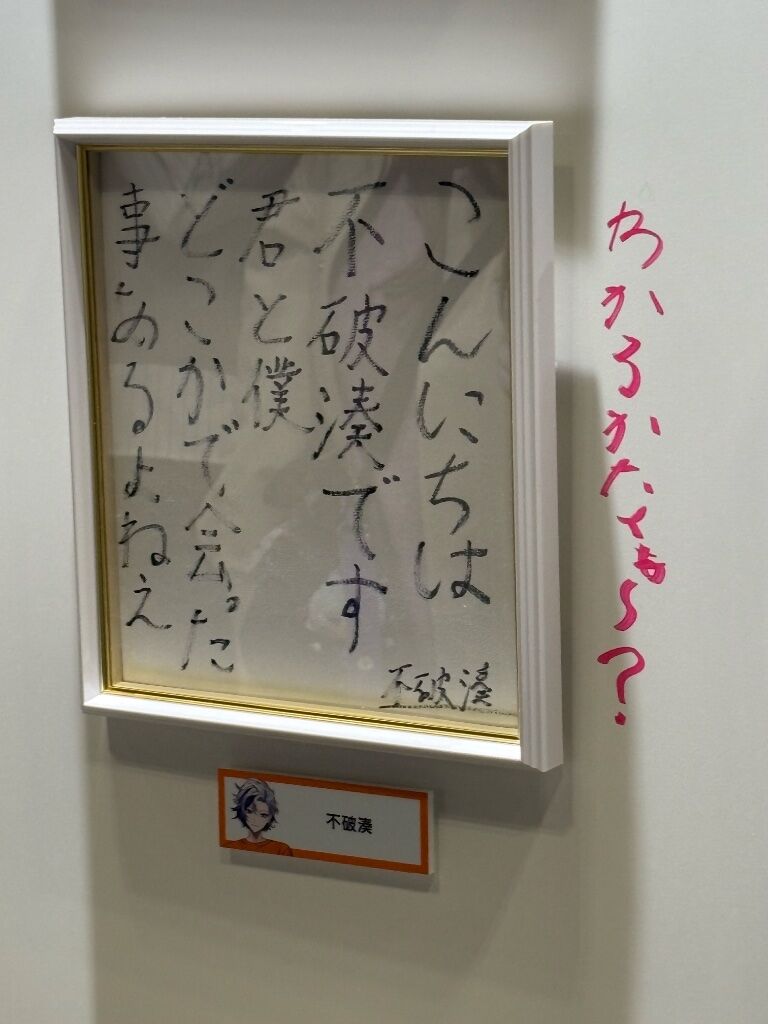 わかるかなぁ〜?
こんにちは
不破湊です
君と僕
どこかで会った
事あるよねえ
不破湊
不破湊